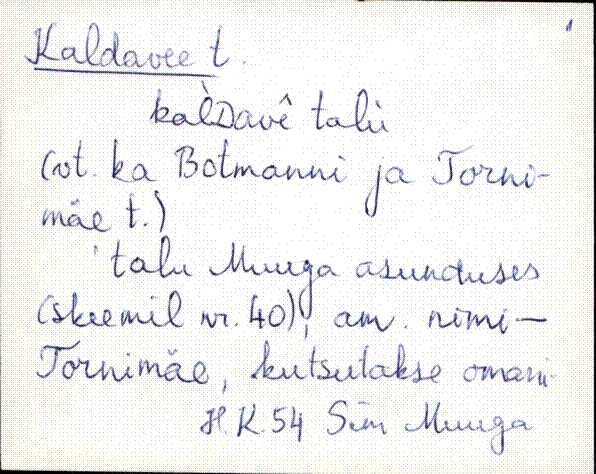 Kaldavee t.
kaLDavê talu
(vt. ka Botmanni ja Torni-
mäe t.)
talu Muuga asunduses
(skeemil nr. 40), am. nimi—
Tornimäe, kutsutakse omani-
H.K.54 Sim Muuga